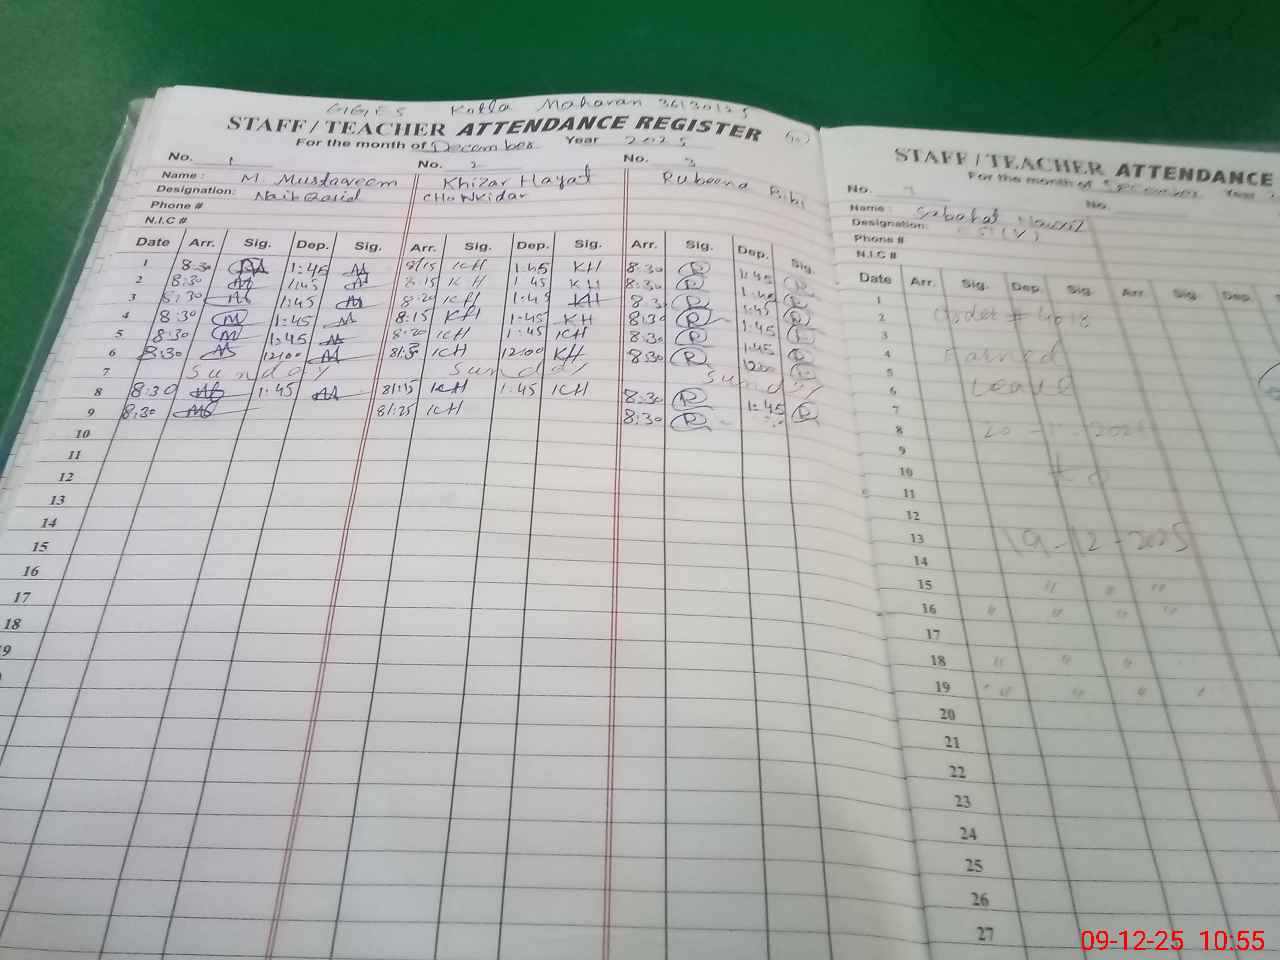 GGES Kotla Maharan 36130125
STAFF / TEACHER ATTENDANCE REGISTER
For the month of December Year 2025
No. 1 No. 2 No. 3
Name : M Mustaqeem Khizar Hayat Rubeena Bibi
Designation: Naib Qasid CHoWKidar
Phone #
N.I.C #
Date Arr. Sig. Dep. Sig. Arr. Sig. Dep. Sig. Arr. Sig. Dep. Sig.
1 8:30 M 1:45 M 8:15 KH 1:45 KH 8:30 R 1:45 R
2 8:30 M 1:45 M 8:15 KH 1:45 KH 8:30 R 1:45 R
3 8:30 M 1:45 M 8:20 KH 1:45 KH 8:30 R 1:45 R
4 8:30 M 1:45 M 8:15 KH 1:45 KH 8:30 R 1:45 R
5 8:30 M 1:45 M 8:20 KH 1:45 KH 8:30 R 1:45 R
6 8:30 M 12:00 M KH 12:00 KH 8:30 R 1200 R
7 Sunday Sunday Sunday
8 8:30 M 1:45 M 81:15 KH 1:45 KH 8:30 R 1:45 R
9 8:30 M 81:25 KH 8:30 R
10
11
12
13
14
15
16
17
18
9
STAFF / TEACHER ATTENDANCE
For the month of December Year
No. No.
Name : Sabahat Nawaz
Designation:
Phone #
N.I.C #
Date Arr. Sig. Dep. Sig. Arr. Sig. Dep.
1
2 Order #
3
4 Earned
5
6 Leave
7
8
9
10 to
11
12
13 19-12-2025
14
15 " " "
16 " " " "
17
18 " " "
19 " " "
20
21
22
23
24
25
26
27
09-12-25 10:55